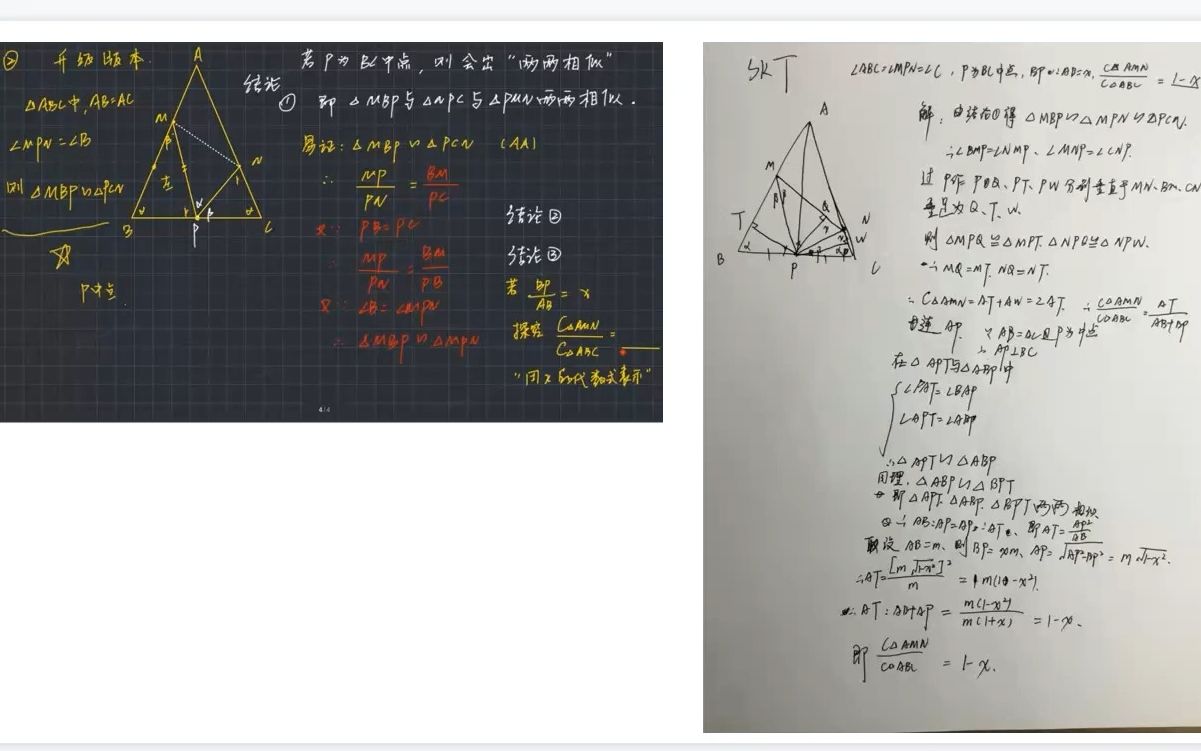 ② 升级版本.
△ABC中, AB=AC
∠MPN=∠B
则 △MBP∽△PCN
P中点.
A
M
N
B
P
C
β
左
α
β
若P为BC中点, 则会出"两两相似"
结论
① 即 △MBP与△NPC与△PMN两两相似.
易证: △MBP∽△PCN (AA)
∴ MP/PN = BM/PC
又∵ PB=PC
∴ MP/PN = BM/PB
又∵ ∠B=∠MPN
∴ △MBP∽△MPN
结论②
结论③
若 BP/AB = x
探究 C△AMN/C△ABC = ____
"用x的代数式表示"
4/4
SKT
A
M
Q
T
N
W
B
P
C
∠ABC=∠MPN=∠C, P为BC中点, BP:AB=x, C△AMN/C△ABC = 1-x
解: 由结论①得 △MBP∽△MPN∽△PCN.
∴∠BMP=∠NMP, ∠MNP=∠CNP.
过P作 PQ, PT, PW 分别垂直于MN, BM, CN
垂足为 Q、T、W.
则 △MPQ≌△MPT. △NPQ≌△NPW.
∴ MQ=MT. NQ=NT.
∴ C△AMN=AT+AW=2AT. ∴ C△AMN/C△ABC = AT/AB+BP
连 AP. ∵ AB=AC且P为中点
∴ AP⊥BC
在△APT与△ABP中
∠PAT=∠BAP
∠APT=∠ABP
∴△APT∽△ABP
同理, △ABP∽△BPT
即△APT. △ABP. △BPT两两相似
∴ AB:AP=AP:AT, 即AT=AP²/AB
设 AB=m, 则BP=xm, AP=√AP²-BP² = m√1-x².
∴AT=[m√1-x²]²/m = m(1-x²).
∴ AT:AB+AP = m(1-x²)/m(1+x) = 1-x.
即 C△AMN/C△ABC = 1-x.